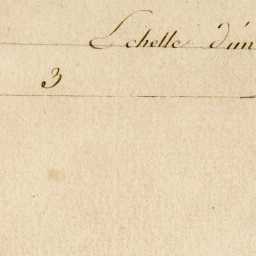 Echelle d'un
3